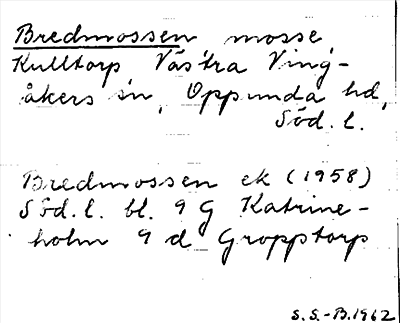 Bredmossen mosse
Kulltorp Västra Ving-
åkers sn, Oppunda hd,
Söd. l.
Bredmossen ek (1958)
Söd. l. bl. 9 G Katrine-
holm 9 d Gropptorp
S.S.-B.1962